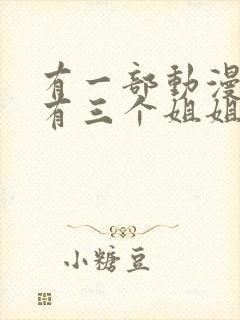 有一部動漫
有三个姐姐
小糖豆